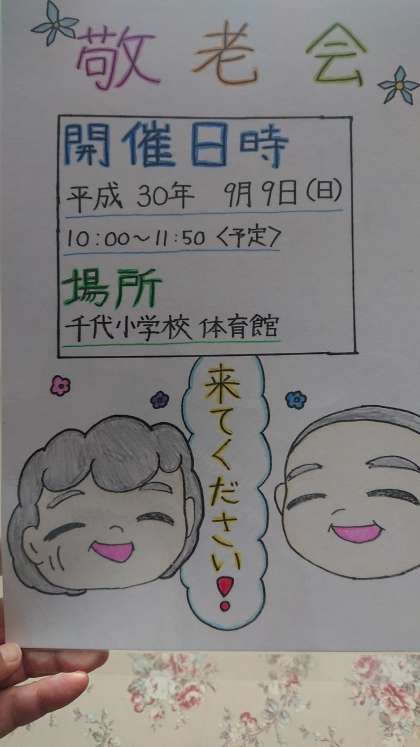 敬老会
開催日時
平成 30年 9月 9日(日)
10:00～11:50 <予定>
場所
千代小学校 体育館
来てください!